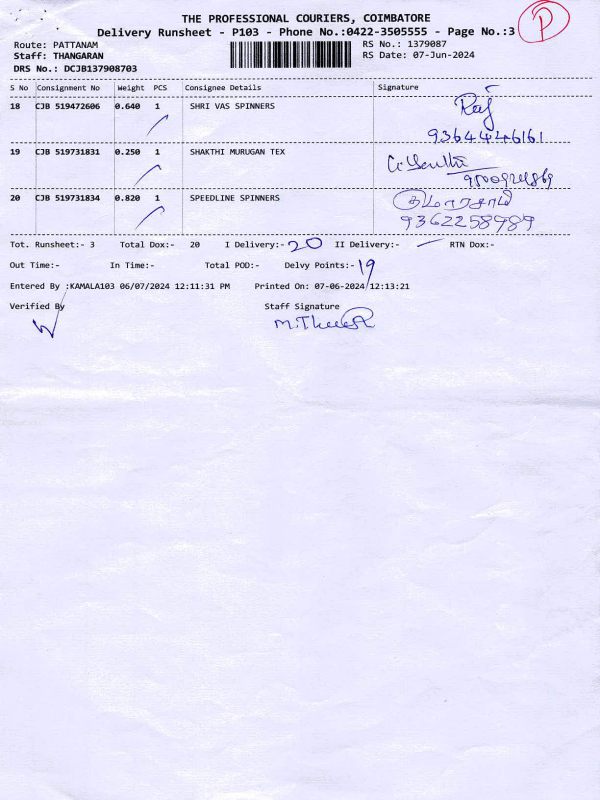 THE PROFESSIONAL COURIERS, COIMBATORE
Delivery Runsheet - P103 - Phone No.:0422-3505555 - Page No.:3
P
Route: PATTANAM
RS No.: 1379087
Staff: THANGARAN
RS Date: 07-Jun-2024
DRS No.: DCJB137908703
S No Consignment No Weight PCS Consignee Details Signature
18 CJB 519472606 0.640 1 SHRI VAS SPINNERS Raj
9364446161
19 CJB 519731831 0.250 1 SHAKTHI MURUGAN TEX
20 CJB 519731834 0.820 1 SPEEDLINE SPINNERS குமாரசாமி
9362258989
Tot. Runsheet:- 3 Total Dox:- 20 I Delivery:- 20 II Delivery:- — RTN Dox:-
Out Time:- In Time:- Total POD:- Delvy Points:- 19
Entered By :KAMALA103 06/07/2024 12:11:31 PM Printed On: 07-06-2024 12:13:21
Verified By Staff Signature